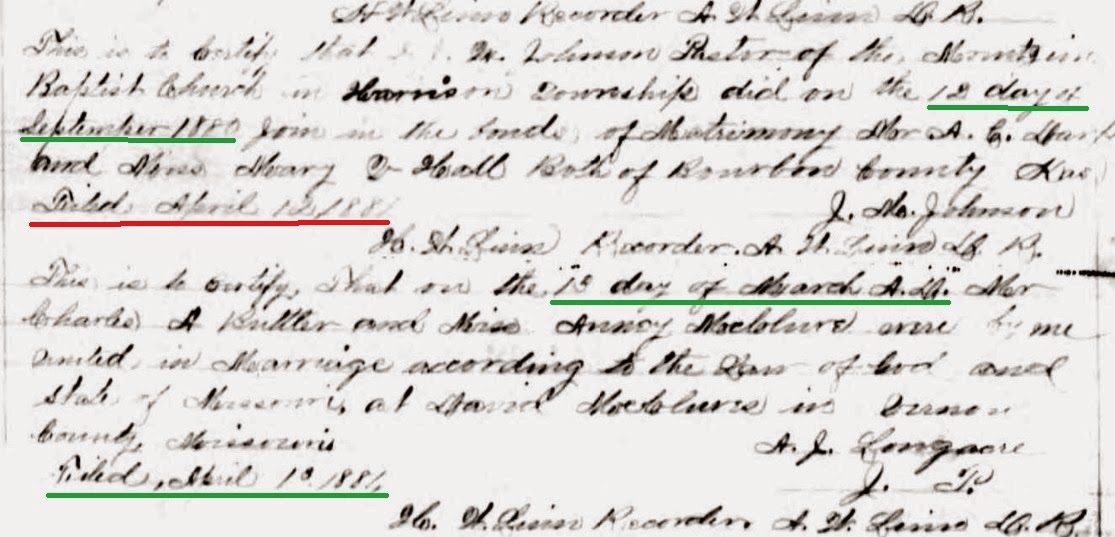 H. W. Linn Recorder A. W. Linn D. R.
This is to Certify that J. M. Johnson Pastor of the Mountain
Baptist Church in Harrison Township did on the 12 day of
September 1880 Join in the bonds of Matrimony Mr A. E.
and Miss Mary V Hall Both of Bourbon County Kas
Filed April 12, 188
J. M. Johnson
H. W. Linn Recorder. A. W. Linn D. R.
This is to certify, That on the 13 day of March A.D. Mr
Charles A Buttler and Miss Annoy Mcclure were by me
united in Marriage according to the Law of God and
State of Missouri, at David McClures in Vernon
County, Missouris
A. J. Longacre
Filed, April 13. 1881
J. P.
H. W. Linn Recorder. A. W. Linn D. R.